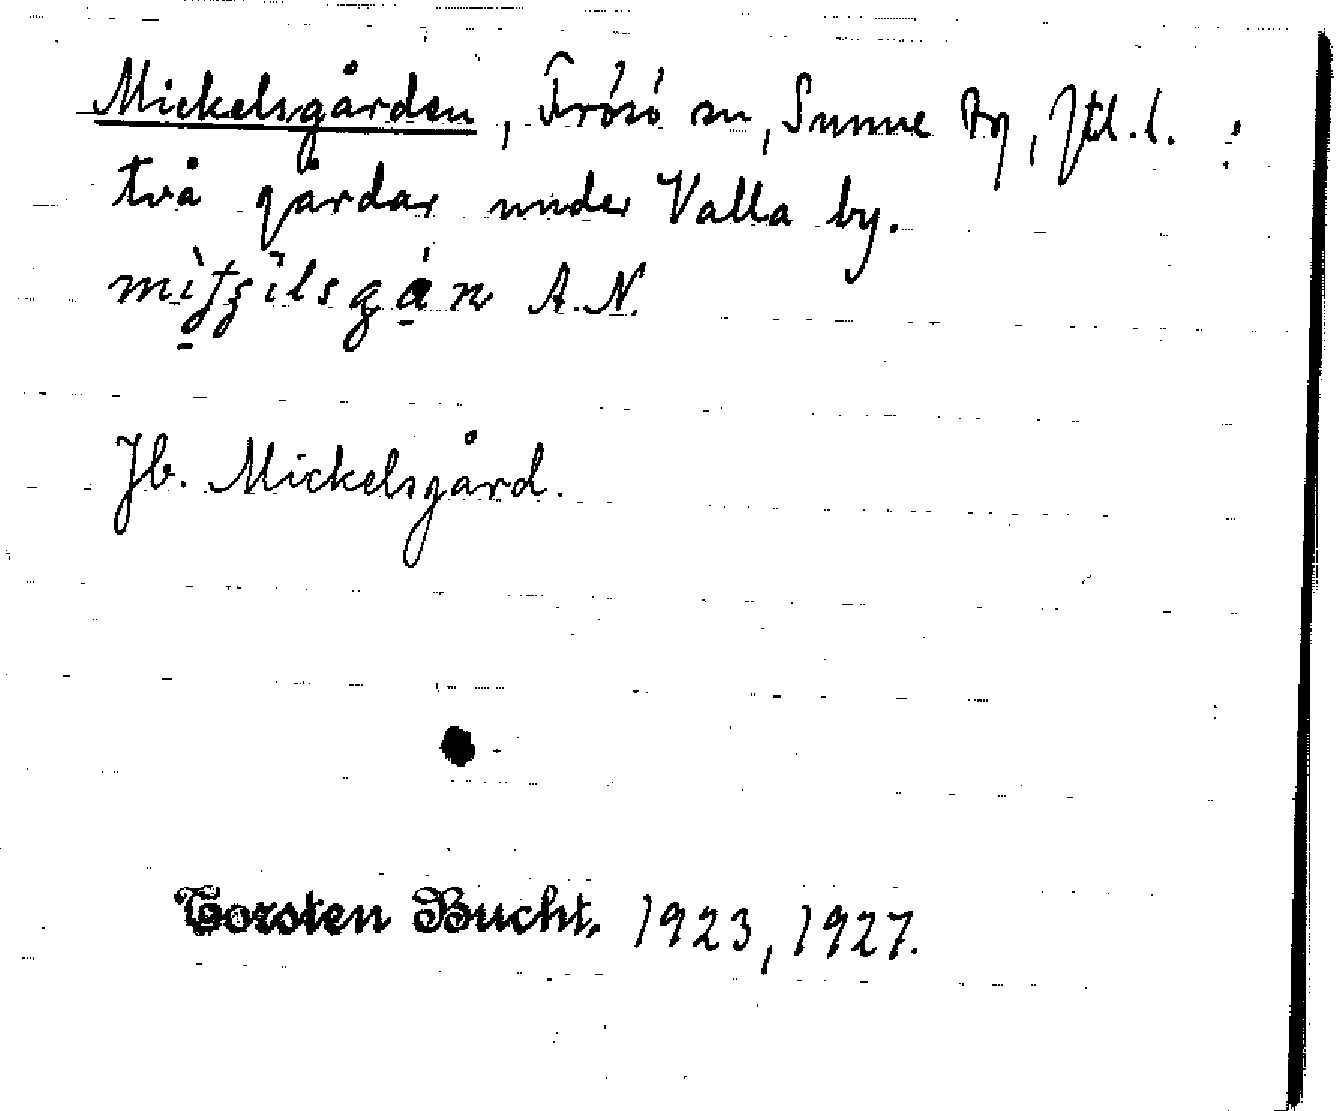 Mickelsgården, Frösö sn, Sunne tg, Jtl. l. :
två gårdar under Valla by.
A.N.
Jb. Mickelsgård.
Torsten Bucht. 1923, 1927.